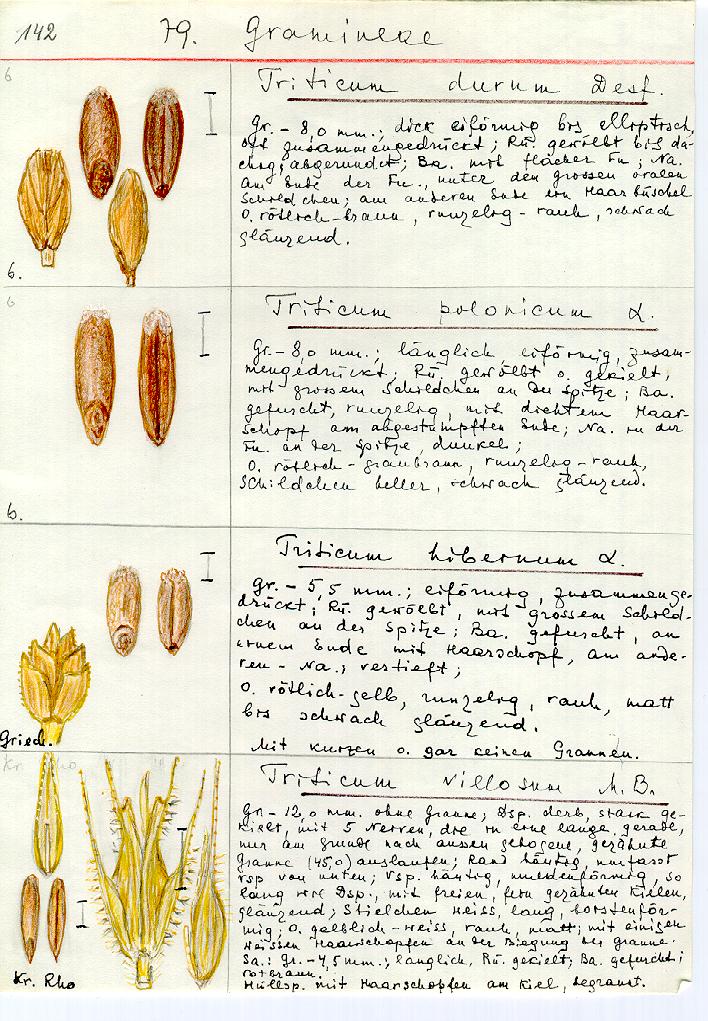 142 79. Gramineae
6
Triticum durum Desf.
Gr. - 8,0 mm.; dick eiförmig bis elliptisch,
oft zusammengedrückt; Rü. gewölbt bis da-
chig, abgerundet; Ba. mit flacher Fu.; Na.
am Ende der Fu., unter den grossen ovalen
Schildchen; am anderen Ende ein Haarbüschel
O. rötlich-braun, runzelig-rauh, schwach
glänzend.
6.
6
Triticum polonicum L.
Gr. - 8,0 mm.; länglich eiförmig, zusam-
mengedrückt; Rü. gewölbt o. gekielt,
mit grossem Schildchen an der Spitze; Ba.
gefurcht, runzelig, mit dichtem Haar-
schopf am abgestumpften Ende; Na. in der
Fu. an der Spitze, dunkel;
O. rötlich-graubraun, runzelig-rauh,
Schildchen heller, schwach glänzend.
6.
Triticum hibernum L.
Gr. - 5,5 mm.; eiförmig, zusammenge-
drückt; Rü. gewölbt, mit grossem Schild-
chen an der Spitze; Ba. gefurcht, an
einem Ende mit Haarschopf, am ande-
ren - Na.; vertieft;
O. rötlich-gelb, runzelig, rauh, matt
bis schwach glänzend.
Mit kurzen o. gar keinen Grannen.
Griech.
Kr. Rho
Triticum villosum M.B.
Gr. - 12,0 mm. ohne Granne; Dsp. derb, stark ge-
kielt, mit 5 Nerven, die in eine lange, gerade,
nur am Grunde nach aussen gebogene, gezähnte
Granne (45,0) auslaufen; Rand häutig, umfasst
Vsp von unten; Vsp. häutig, muldenförmig, so
lang wie Dsp., mit freien, fein gezähnten Kielen,
glänzend; Stielchen weiss, lang, borstenför-
mig; O. gelblich-weiss, rauh, matt; mit einigen
weissen Haarschöpfen an der Biegung der Granne.
Sa.: Gr. - 4,5 mm.; länglich, Rü. gekielt; Ba. gefurcht;
rotbraun.
Hüllsp. mit Haarschöpfen am Kiel, begrannt.
Kr. Rho